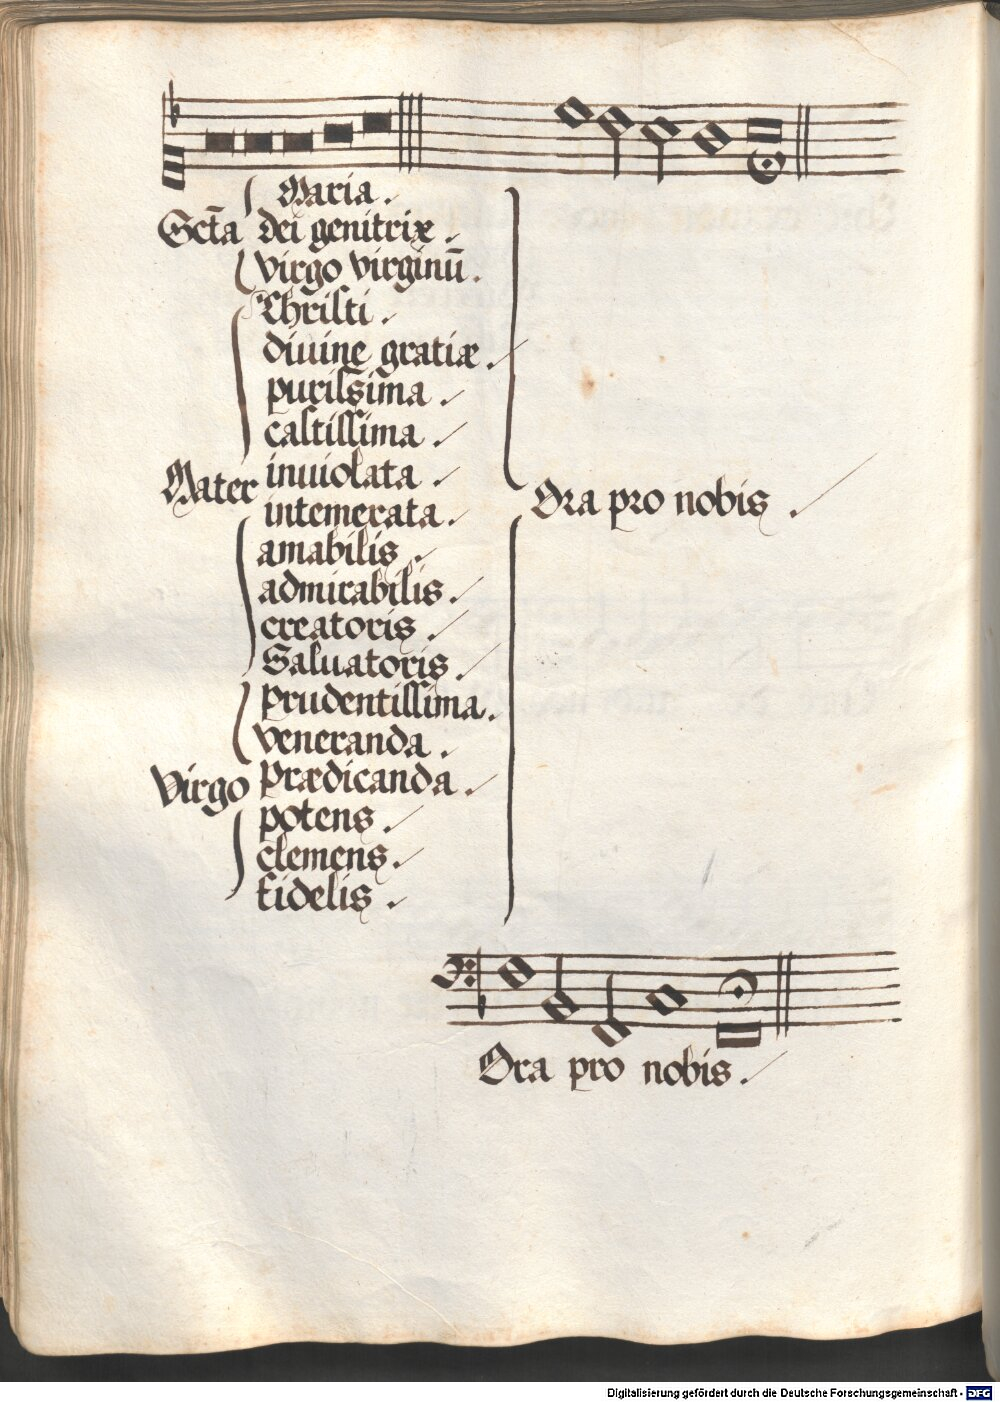 Maria.
Sctā dei genitrix.
virgo virginū.
Christi.
diuine gratiæ.
purissima.
castissima.
Mater inuiolata.
intemerata.
amabilis.
admirabilis.
creatoris.
Saluatoris.
Ora pro nobis.
Prudentissima.
veneranda.
Virgo Prædicanda.
potens.
clemens.
fidelis.
Ora pro nobis.
Digitalisierung gefördert durch die Deutsche Forschungsgemeinschaft - DFG